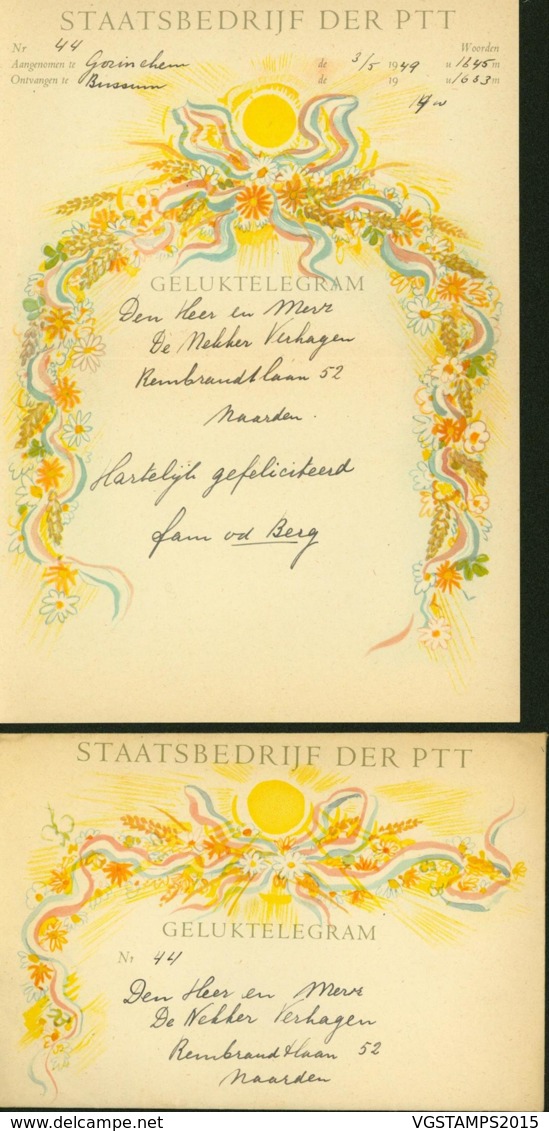 STAATSBEDRIJF DER PTT
Nr 44 Woorden
Aangenomen te Gorinchem de 3/5 1949 u 1645 m
Ontvangen te Bussum de 19 u 1653 m
GELUKTELEGRAM
Den Heer en Mevr
De Nekker Verhagen
Rembrandtlaan 52
Naarden.
Hartelijk gefeliciteerd
fam vd Berg
STAATSBEDRIJF DER PTT
GELUKTELEGRAM
Nr 44
Den Heer en Mevr
De Nekker Verhagen
Rembrandtlaan 52
Naarden
VGSTAMPS2015